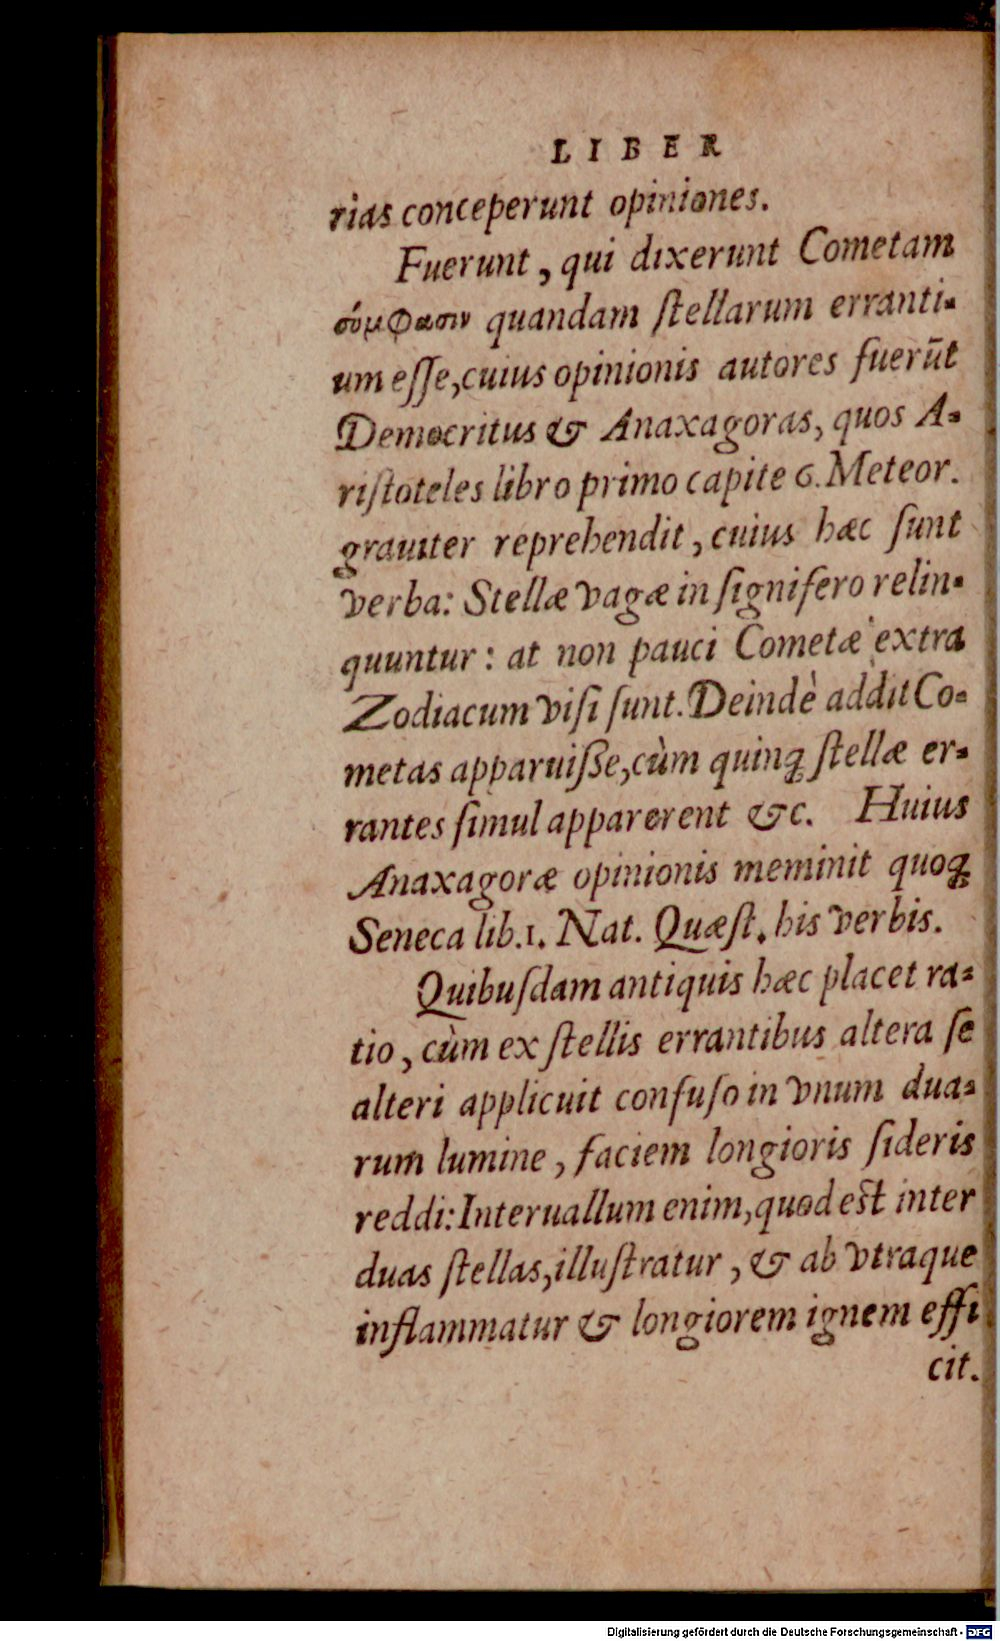 LIBER
rias conceperunt opiniones.
Fuerunt, qui dixerunt Cometam
σύμφασιν quandam ſtellarum erranti-
um eſſe, cuius opinionis autores fuerūt
Democritus & Anaxagoras, quos A-
riſtoteles libro primo capite 6. Meteor.
grauiter reprehendit, cuius hæc ſunt
verba: Stellæ vagæ in ſignifero relin-
quuntur: at non pauci Cometæ extra
Zodiacum viſi ſunt. Deindè addit Co-
metas apparuiſſe, cùm quinq; ſtellæ er-
rantes ſimul apparerent &c. Huius
Anaxagoræ opinionis meminit quoq;
Seneca lib. 1. Nat. Quæſt. his verbis.
Quibuſdam antiquis hæc placet ra-
tio, cùm ex ſtellis errantibus altera ſe
alteri applicuit confuſo in vnum dua-
rum lumine, faciem longioris ſideris
reddi: Interuallum enim, quod eſt inter
duas ſtellas, illuſtratur, & ab vtraque
inflammatur & longiorem ignem effi
cit.
Digitalisierung gefördert durch die Deutsche Forschungsgemeinschaft - DFG